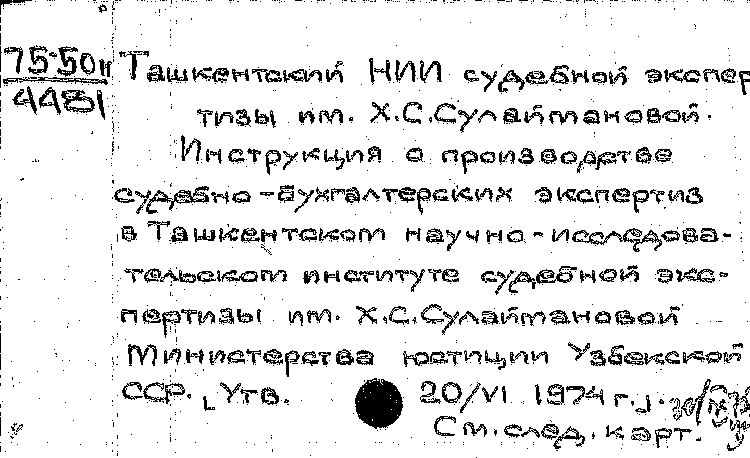 75-50н
4481
Ташкентский НИИ судебной экспер
тизы им. Х.С.Сулаймановой.
Инструкция о производстве
судебно-бухгалтерских экспертиз
в Ташкентском научно-исследова-
тельском институте судебной экс-
пертизы им. Х.С.Сулаймановой
Министерства юстиции Узбекской
ССР. [Утв. 20/VI 1974 г.].
См. след. карт.